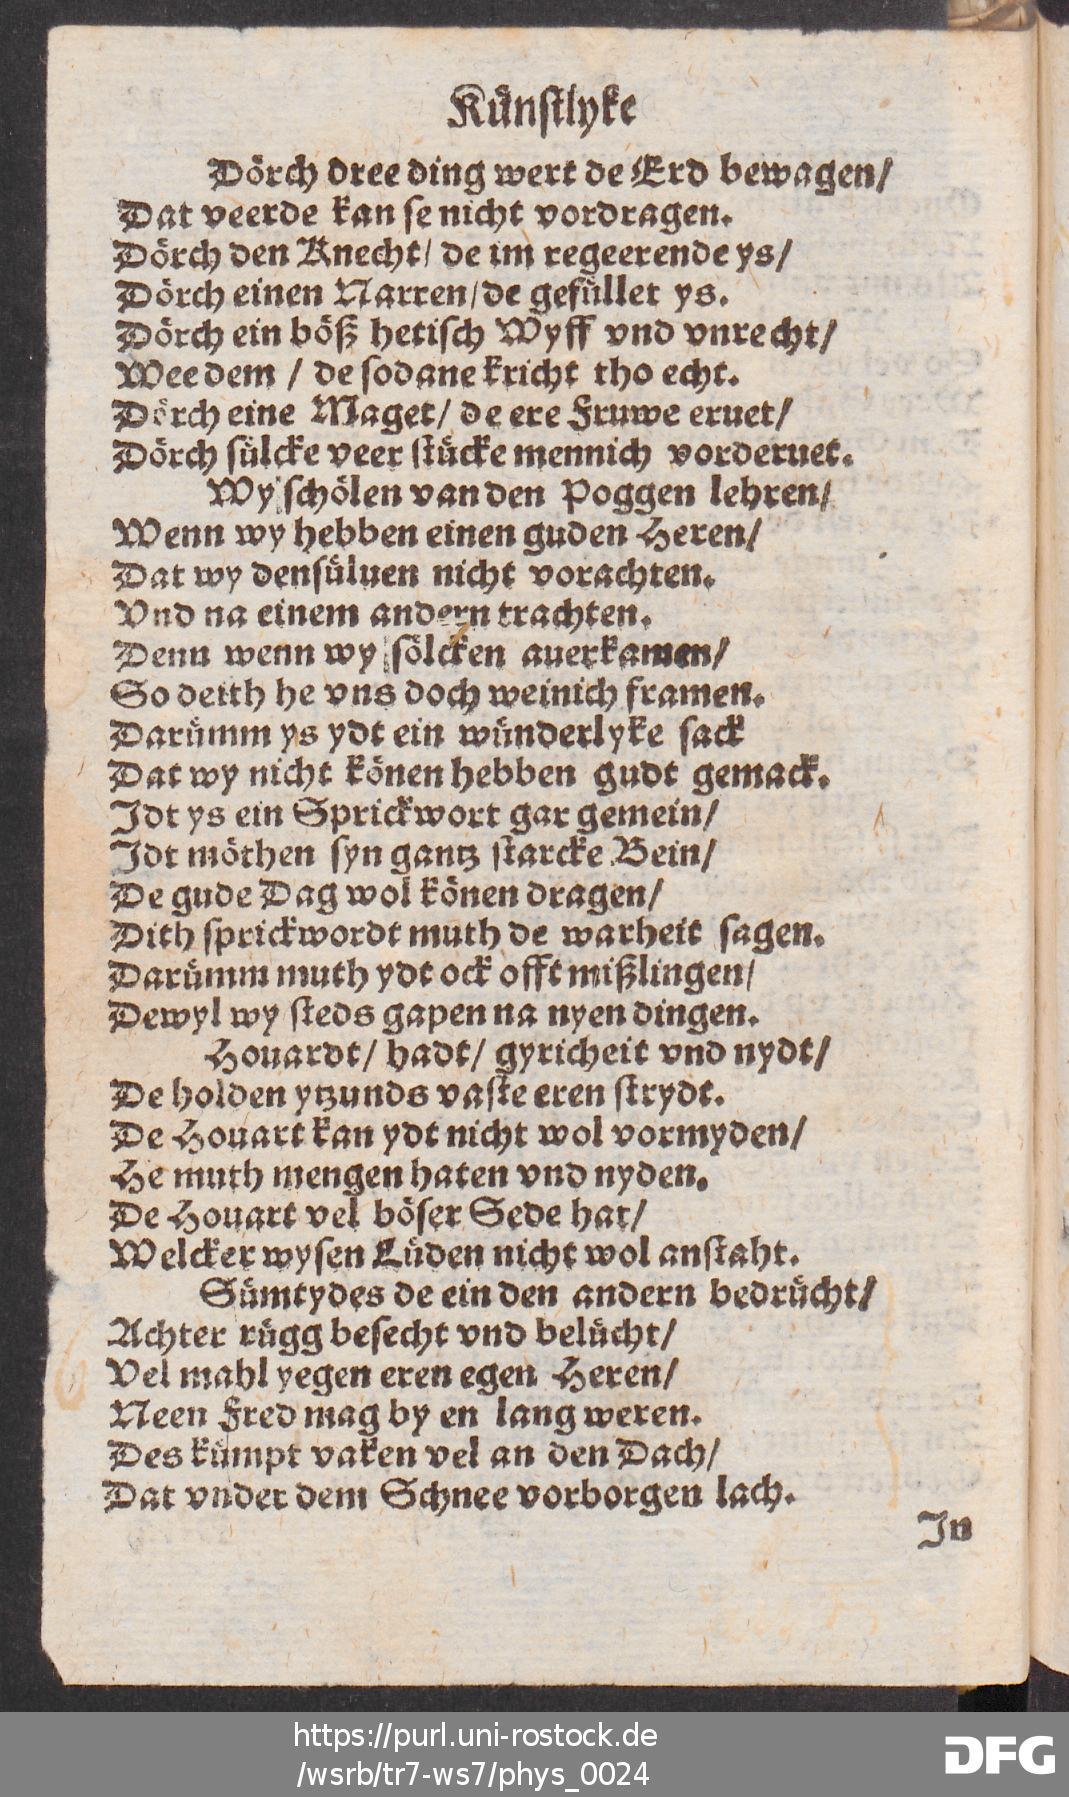 Kuͤnſtlyke
Doͤrch dree ding wert de Erd bewagen/
Dat veerde kan ſe nicht vordragen.
Doͤrch den Knecht/ de im regeerende ys/
Doͤrch einen Narren/ de gefuͤllet ys.
Doͤrch ein boͤß hetiſch Wyff vnd vnrecht/
Wee dem / de ſodane kricht tho echt.
Doͤrch eine Maget/ de ere Fruwe eruet/
Doͤrch ſuͤlcke veer ſtuͤcke mennich vorderuet.
Wy ſchoͤlen van den Poggen lehren/
Wenn wy hebben einen guden Heren/
Dat wy denſuͤluen nicht vorachten.
Vnd na einem andern trachten.
Denn wenn wy ſoͤlcken auerkamen/
So deith he vns doch weinich framen.
Daruͤmm ys ydt ein wuͤnderlyke ſack
Dat wy nicht koͤnen hebben gudt gemack.
Idt ys ein Sprickwort gar gemein/
Idt moͤthen ſyn gantz ſtarcke Bein/
De gude Dag wol koͤnen dragen/
Dith ſprickwordt muth de warheit ſagen.
Daruͤmm muth ydt ock offt mißlingen/
Dewyl wy ſteds gapen na nyen dingen.
Houardt/ hadt/ gyricheit vnd nydt/
De holden ytzunds vaſte eren ſtrydt.
De Houart kan ydt nicht wol vormyden/
He muth mengen haten vnd nyden.
De Houart vel boͤſer Sede hat/
Welcker wyſen Luͤden nicht wol anſtaht.
Suͤmtydes de ein den andern bedruͤcht/
Achter ruͤgg beſecht vnd beluͤcht/
Vel mahl yegen eren egen Heren/
Neen Fred mag by en lang weren.
Des kuͤmpt vaken vel an den Dach/
Dat vnder dem Schnee vorborgen lach.
In
https://purl.uni-rostock.de
/wsrb/tr7-ws7/phys_0024
DFG